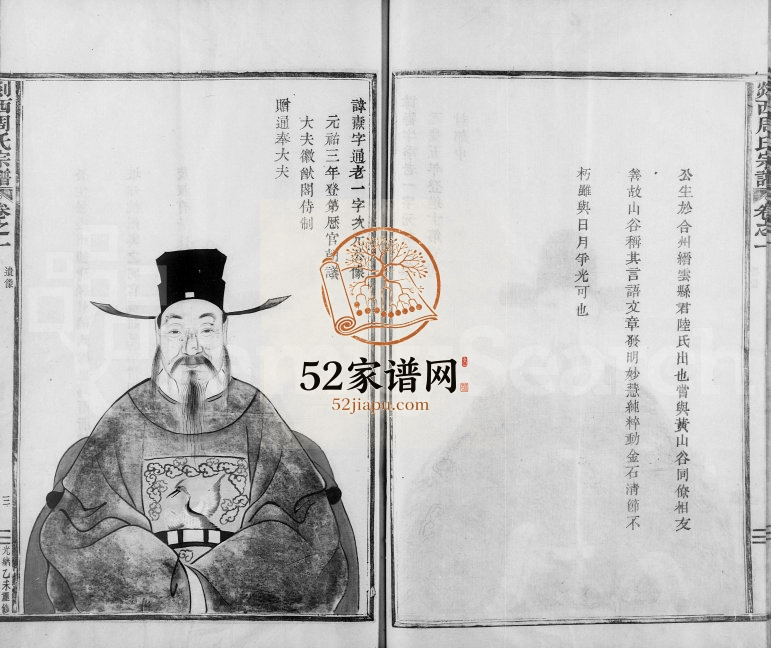 剡西周氏宗譜
卷之一
公生於合州縉雲縣君陸氏出也嘗與黃山谷同僚相友
善故山谷稱其言語文章發明妙慧純粹動金石清節不
朽雖與日月爭光可也
諱燾字通老一字次元公像
元祐三年登第歷官朝議
大夫徽猷閣待制
贈通奉大夫
剡西周氏宗譜
卷之一
遺像
三
光緒乙未重修
52家谱网
52jiapu.com